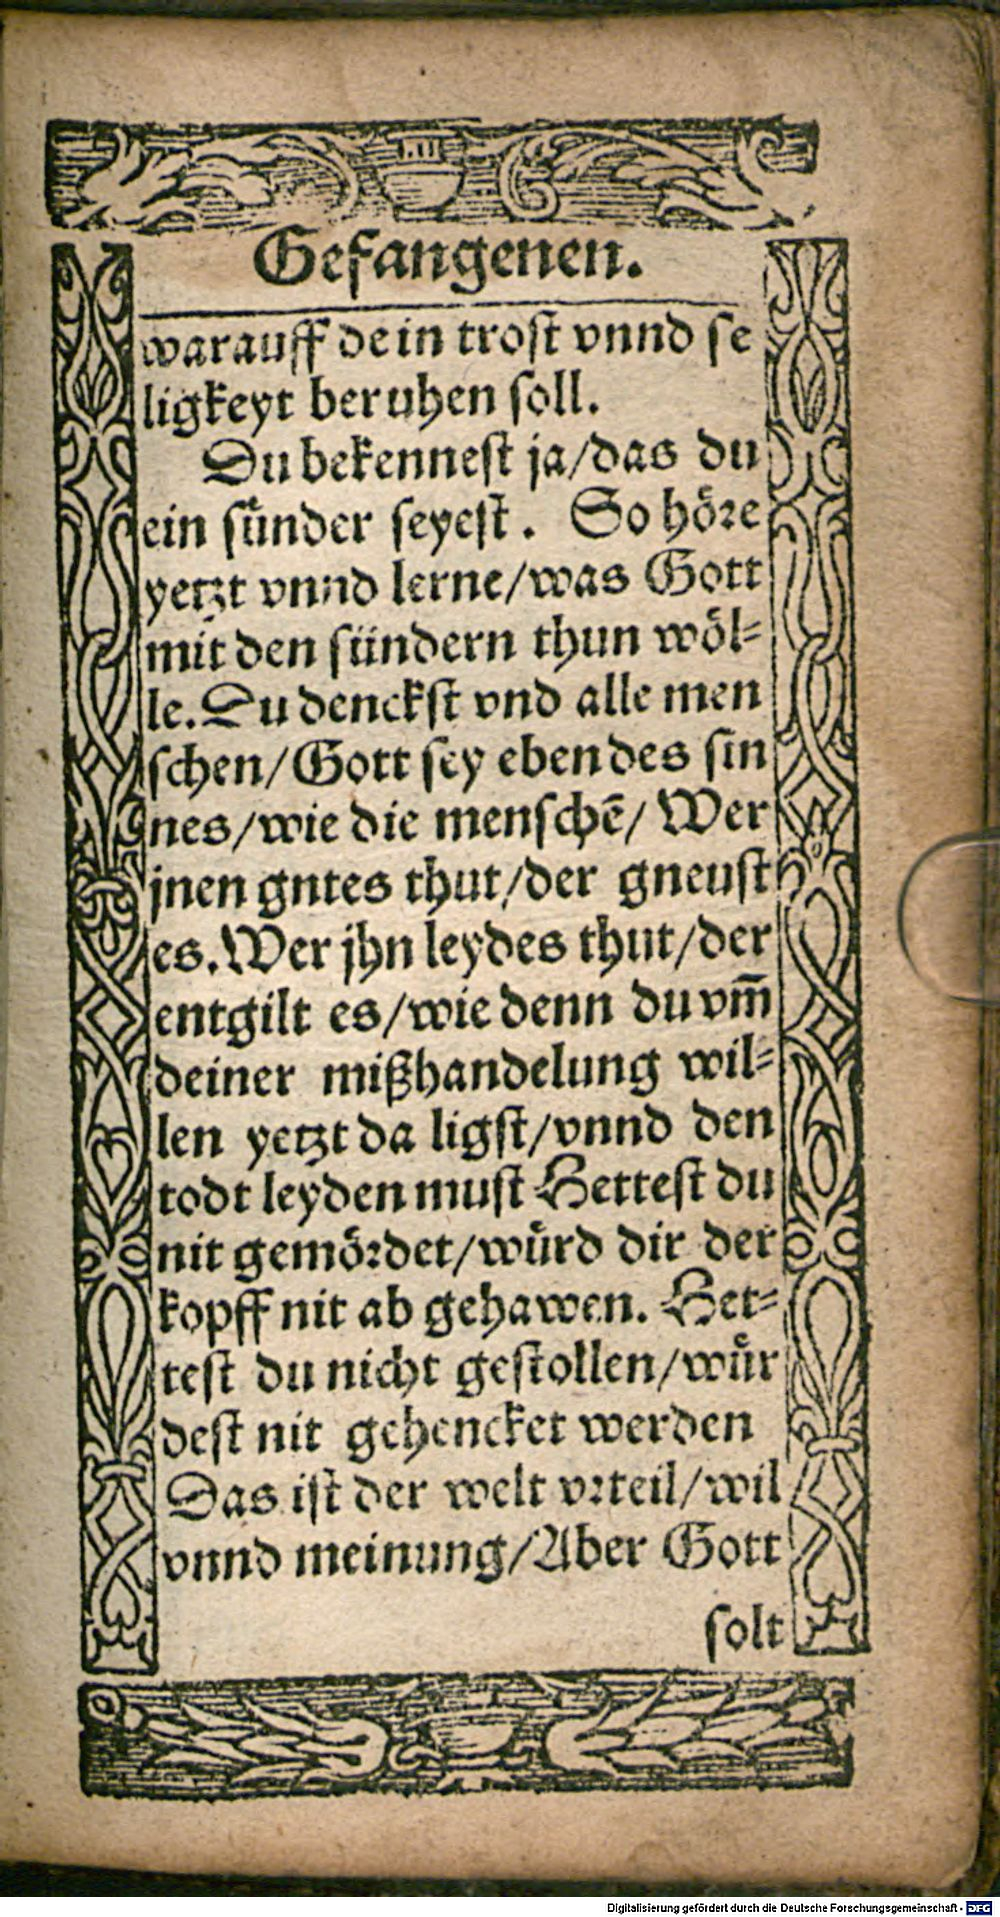 Gefangenen.
warauff dein trost vnnd se
ligkeyt beruhen soll.
Du bekennest ja/das du
ein sünder seyest. So höre
yetzt vnnd lerne/was Gott
mit den sündern thun wöl=
le. Du denckst vnd alle men
schen/Gott sey eben des sin
nes/wie die menschē/ Wer
jnen gntes thut/der gneust
es. Wer jhn leydes thut/der
entgilt es/wie denn du vm̄
deiner mißhandelung wil=
len yetzt da ligst/vnnd den
todt leyden must Hettest du
nit gemördet/würd dir der
kopff nit ab gehawen. Het=
test du nicht gestollen/wür
dest nit gehencket werden
Das ist der welt vrteil/wil
vnnd meinung/Aber Gott
solt
Digitalisierung gefördert durch die Deutsche Forschungsgemeinschaft - DFG